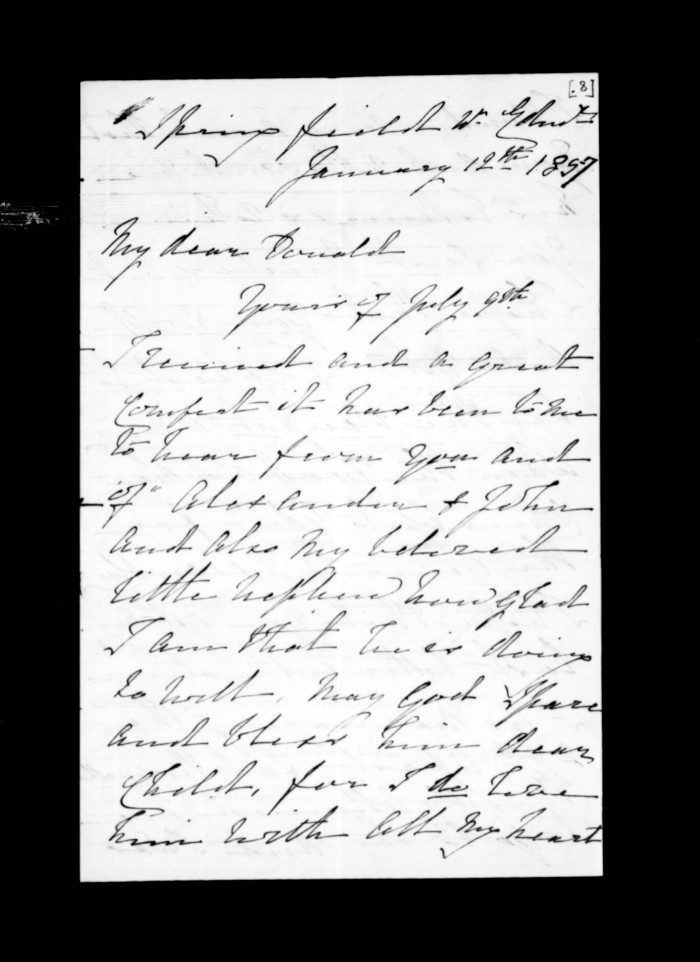 [.8]
Spring field Nr. Edinr.
January 12th 1857
My dear Donald
Yours of July 9th
I received and a great
Comfort it has been to me
to hear from You and
"of" Alexander & John
and also My beloved
little Nephew how glad
I am that he is doing
so well, May God Spare
and bless him dear
Child, for I do love
him with all My heart